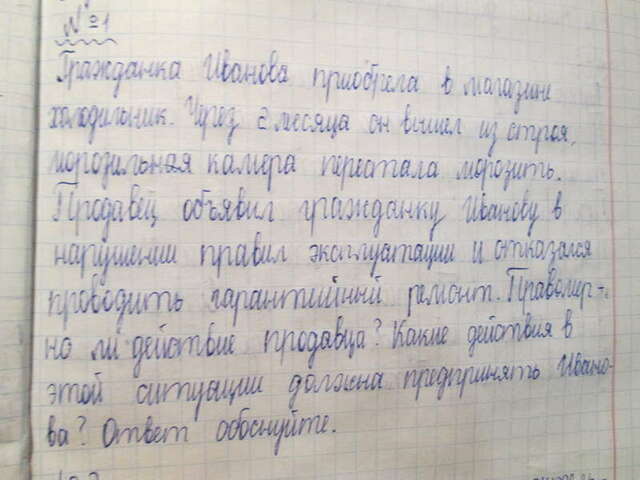 №1
Гражданка Иванова приобрела в магазине
холодильник. Через 2 месяца он вышел из строя,
морозильная камера перестала морозить.
Продавец объявил гражданку Иванову в
нарушении правил эксплуатации и отказался
проводить гарантийный ремонт. Правомер-
но ли действие продавца? Какие действия в
этой ситуации должна предпринять Ивано-
ва? Ответ обоснуйте.